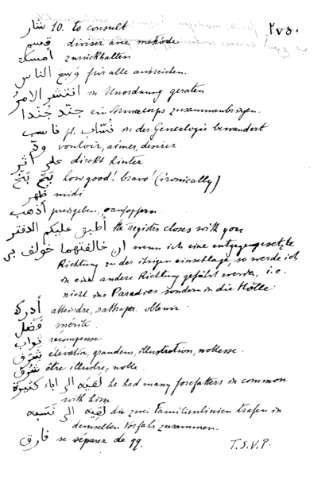 ٢٧٥٠
شار 10. to consult
قسم diviser une
أمسك zurückhalten
الناس für alle ausreichen.
انتشر الأمر in Unordnung geraten
جند جندا ein Armeecorps zusammenbringen.
ناسب pl. نسّاب in der Genealogie bewandert
ودّ vouloir, aimer, désirer
على أثر direkt hinter
بَخٍ بَخٍ how good! bravo (ironically)
ظهر midi
أذهب preisgeben,
أطبق عليكم الدفتر the register closes with you
ان خالفتهما خولف بى wenn ich eine entgegengesetzte
Richtung zu der ihrigen einschlage, so werde ich
in eine andere Richtung geführt werden, i.e.
nicht ins Paradies sondern in die Hölle
أدرك atteindre, obtenir
فضل mérite
ثواب récompense
شرف élévation, grandeur, illustration, noblesse.
شرف être illustre, noble
لقيه الى اباء كثيرة he had many forefathers in common
with him
لقيه الى نسبه die zwei Familienlinien trafen in
demselben Vorfahr zusammen.
فارق se séparer de qq.
T.S.V.P.